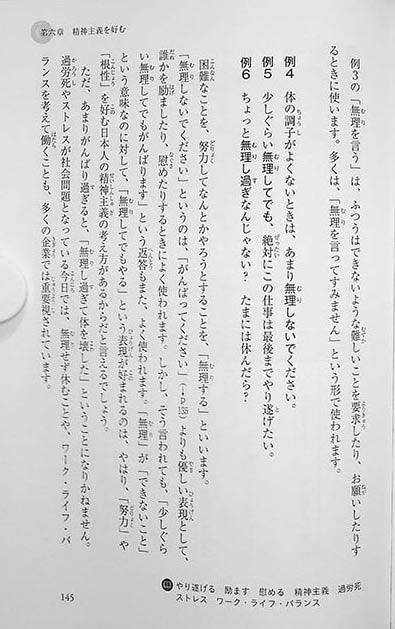 第六章　精神主義を好む
例3の「無理を言う」は、ふつうはできないような難しいことを要求したり、お願いしたりす
るときに使います。多くは、「無理を言ってすみません」という形で使われます。
例4　体の調子がよくないときは、あまり無理しないでください。
例5　少しぐらい無理してでも、絶対にこの仕事は最後までやり遂げたい。
例6　ちょっと無理し過ぎなんじゃない？　たまには休んだら？
困難なことを、努力してなんとかやろうとすることを、「無理する」といいます。
「無理しないでください」というのは、「がんばってください」（→P.135）よりも優しい表現として、
誰かを励ましたり、慰めたりするときによく使われます。しかし、そう言われても、「少しぐら
い無理してでもがんばります」という返答もまた、よく使われます。「無理」が「できないこと」
という意味なのに対して、「無理してでもやる」という表現が好まれるのは、やはり、「努力」や
「根性」を好む日本人の精神主義の考え方があるからだと言えるでしょう。
ただ、あまりがんばり過ぎると、「無理し過ぎて体を壊した」ということになりかねません。
過労死やストレスが社会問題となっている今日では、無理せず休むことや、ワーク・ライフ・バ
ランスを考えて働くことも、多くの企業では重要視されています。
やり遂げる　励ます　慰める　精神主義　過労死
ストレス　ワーク・ライフ・バランス
145